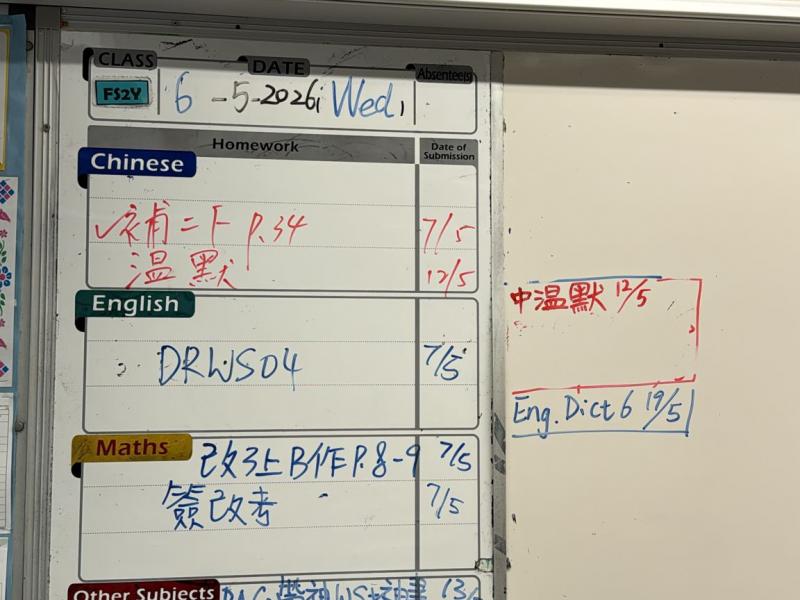 CLASS DATE Absentee(s)
FS2Y 6-5-2026, Wed,
Homework Date of Submission
Chinese
✓補二下 P.34 7/5
溫默 12/5
English
DRWS04 7/5
Maths
改3上B作P.8-9 7/5
簽改考 7/5
Other Subjects
中溫默 12/5
Eng. Dict 6 19/5